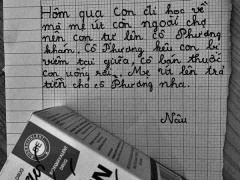 Hôm qua con đi học về
mà mẹ út còn ngoài chợ
nên con tự lên cô Phương
khám, cô Phương kêu con bị
viêm tai giữa, cô bán thuốc
con uống rồi. Mẹ ra lên trả
tiền cho cô Phương nha.
Nâu